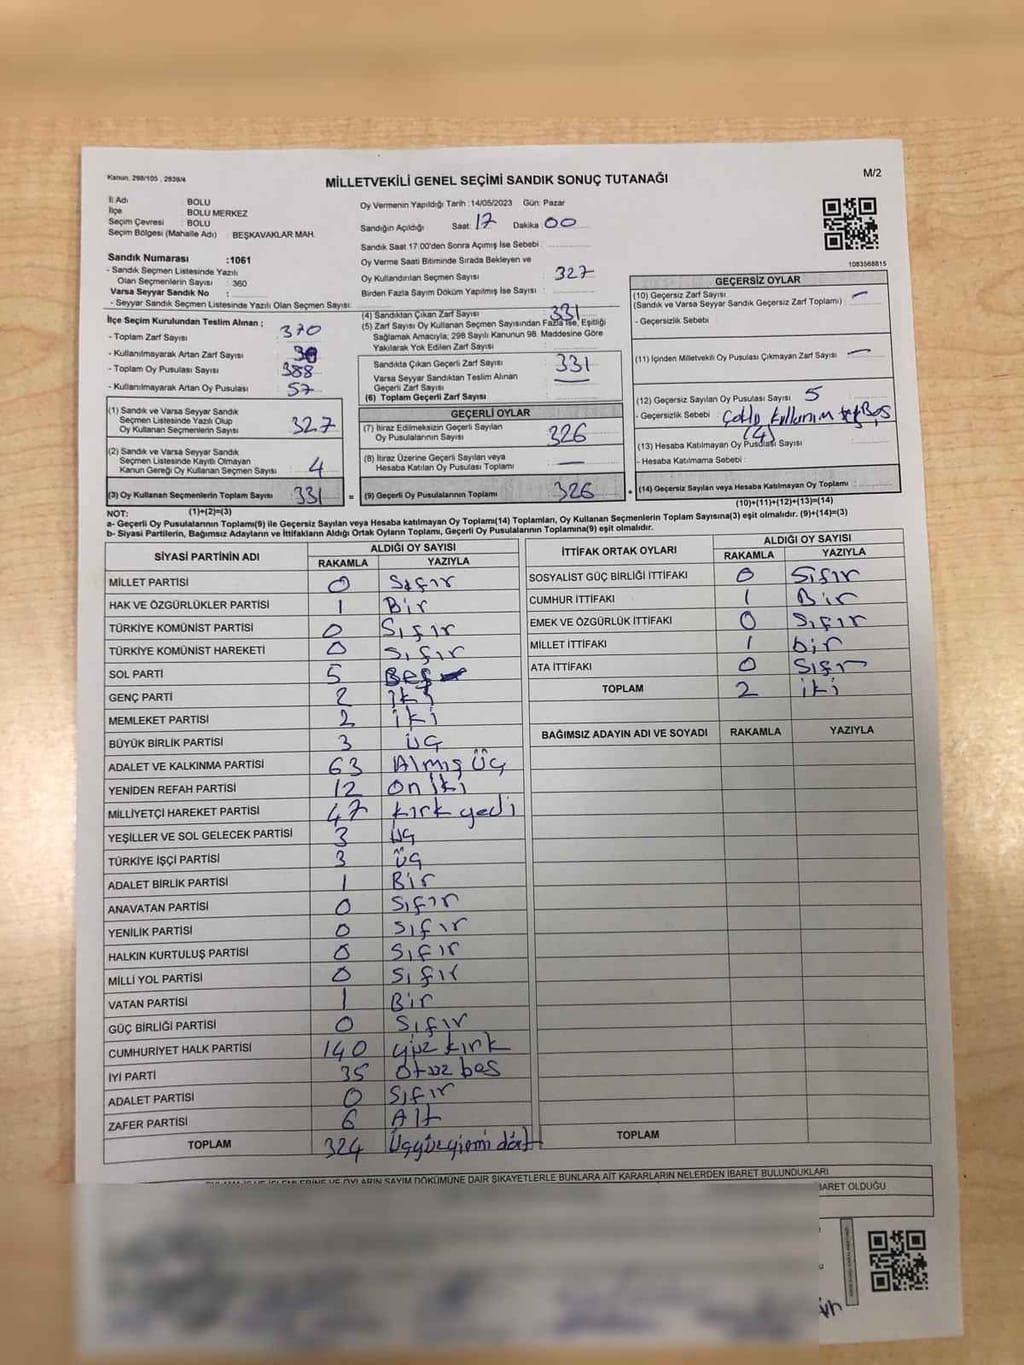 Kanun, 298/105 , 2839/4
MİLLETVEKİLİ GENEL SEÇİMİ SANDIK SONUÇ TUTANAĞI
M/2
İl Adı : BOLU
İlçe : BOLU MERKEZ
Seçim Çevresi : BOLU
Seçim Bölgesi (Mahalle Adı) : BEŞKAVAKLAR MAH.
Sandık Numarası :1061
- Sandık Seçmen Listesinde Yazılı
Olan Seçmenlerin Sayısı : 360
Varsa Seyyar Sandık No :
- Seyyar Sandık Seçmen Listesinde Yazılı Olan Seçmen Sayısı:
Oy Vermenin Yapıldığı Tarih :14/05/2023 Gün: Pazar
Sandığın Açıldığı Saat: 17 Dakika 00
Sandık Saat 17:00'den Sonra Açımış İse Sebebi :
Oy Verme Saati Bitiminde Sırada Bekleyen ve
Oy Kullandırılan Seçmen Sayısı : 327
Birden Fazla Sayım Döküm Yapılmış İse Sayısı :
1083568815
İlçe Seçim Kurulundan Teslim Alınan ;
- Toplam Zarf Sayısı : 370
- Kullanılmayarak Artan Zarf Sayısı
- Toplam Oy Pusulası Sayısı : 388
- Kullanılmayarak Artan Oy Pusulası : 57
(1) Sandık ve Varsa Seyyar Sandık
Seçmen Listesinde Yazılı Olup
Oy Kullanan Seçmenlerin Sayısı 327
(2) Sandık ve Varsa Seyyar Sandık
Seçmen Listesinde Kayıtlı Olmayan
Kanun Gereği Oy Kullanan Seçmen Sayısı 4
(3) Oy Kullanan Seçmenlerin Toplam Sayısı 331
(4) Sandıktan Çıkan Zarf Sayısı : 331
(5) Zarf Sayısı Oy Kullanan Seçmen Sayısından Fazla İse, Eşitliği
Sağlamak Amacıyla, 298 Sayılı Kanunun 98. Maddesine Göre
Yakılarak Yok Edilen Zarf Sayısı
Sandıkta Çıkan Geçerli Zarf Sayısı 331
Varsa Seyyar Sandıktan Teslim Alınan
Geçerli Zarf Sayısı —
(6) Toplam Geçerli Zarf Sayısı
GEÇERLİ OYLAR
(7) İtiraz Edilmeksizin Geçerli Sayılan
Oy Pusulalarının Sayısı 326
(8) İtiraz Üzerine Geçerli Sayılan veya
Hesaba Katılan Oy Pusulası Toplamı —
= (9) Geçerli Oy Pusulalarının Toplamı 326
GEÇERSİZ OYLAR
(10) Geçersiz Zarf Sayısı
(Sandık ve Varsa Seyyar Sandık Geçersiz Zarf Toplamı) : —
- Geçersizlik Sebebi :
(11) İçinden Milletvekili Oy Pusulası Çıkmayan Zarf Sayısı : —
(12) Geçersiz Sayılan Oy Pusulası Sayısı : 5
- Geçersizlik Sebebi : Boş
(4)
(13) Hesaba Katılmayan Oy Pusulası Sayısı :
- Hesaba Katılmama Sebebi :
+ (14) Geçersiz Sayılan veya Hesaba Katılmayan Oy Toplamı :
(10)+(11)+(12)+(13)=(14)
NOT: (1)+(2)=(3)
a- Geçerli Oy Pusulalarının Toplamı(9) ile Geçersiz Sayılan veya Hesaba katılmayan Oy Toplamı(14) Toplamları, Oy Kullanan Seçmenlerin Toplam Sayısına(3) eşit olmalıdır. (9)+(14)=(3)
b- Siyasi Partilerin, Bağımsız Adayların ve İttifakların Aldığı Ortak Oyların Toplamı, Geçerli Oy Pusulalarının Toplamına(9) eşit olmalıdır.
SİYASİ PARTİNİN ADI ALDIĞI OY SAYISI
RAKAMLA YAZIYLA
MİLLET PARTİSİ 0 Sıfır
HAK VE ÖZGÜRLÜKLER PARTİSİ 1 Bir
TÜRKİYE KOMÜNİST PARTİSİ 0 Sıfır
TÜRKİYE KOMÜNİST HAREKETİ 0 Sıfır
SOL PARTİ 5 Beş
GENÇ PARTİ 2 İki
MEMLEKET PARTİSİ 2 iki
BÜYÜK BİRLİK PARTİSİ 3 üç
ADALET VE KALKINMA PARTİSİ 63 Almış üç
YENİDEN REFAH PARTİSİ 12 on iki
MİLLİYETÇİ HAREKET PARTİSİ 47 kırk yedi
YEŞİLLER VE SOL GELECEK PARTİSİ 3 üç
TÜRKİYE İŞÇİ PARTİSİ 3 üç
ADALET BİRLİK PARTİSİ 1 Bir
ANAVATAN PARTİSİ 0 Sıfır
YENİLİK PARTİSİ 0 Sıfır
HALKIN KURTULUŞ PARTİSİ 0 Sıfır
MİLLİ YOL PARTİSİ 0 Sıfır
VATAN PARTİSİ 1 Bir
GÜÇ BİRLİĞİ PARTİSİ 0 Sıfır
CUMHURİYET HALK PARTİSİ 140 yüz kırk
İYİ PARTİ 35 Otuz beş
ADALET PARTİSİ 0 Sıfır
ZAFER PARTİSİ 6 Altı
TOPLAM 324 Üçyüzyirmi dört
İTTİFAK ORTAK OYLARI ALDIĞI OY SAYISI
RAKAMLA YAZIYLA
SOSYALİST GÜÇ BİRLİĞİ İTTİFAKI 0 Sıfır
CUMHUR İTTİFAKI 1 Bir
EMEK VE ÖZGÜRLÜK İTTİFAKI 0 Sıfır
MİLLET İTTİFAKI 1 bir
ATA İTTİFAKI 0 Sıfır
TOPLAM 2 iki
BAĞIMSIZ ADAYIN ADI VE SOYADI RAKAMLA YAZIYLA
TOPLAM
OYLARIN SAYIM DÖKÜMÜNE DAİR ŞİKAYETLERLE BUNLARA AİT KARARLARIN NELERDEN İBARET BULUNDUKLARI
OLDUĞU